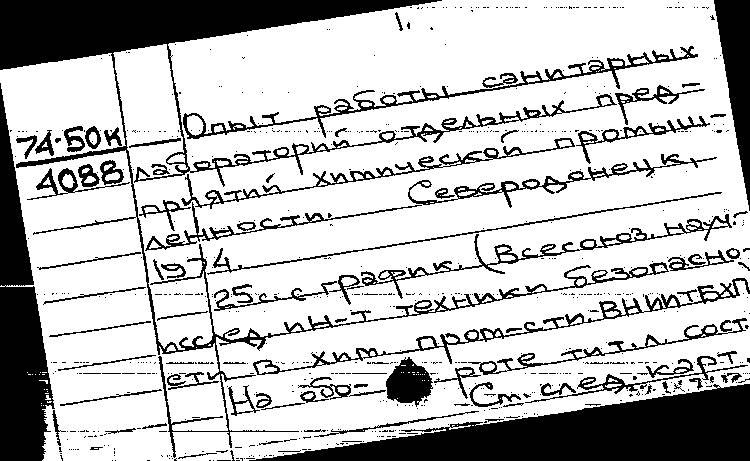 1.
Опыт работы санитарных
74-50к
лабораторий отдельных пред-
4088
приятий химической промыш-
ленности. Северодонецк,
1974.
25с. с график. (Всесоюз. науч.-
исслед. ин-т техники безопасно-
сти в хим. пром-сти. ВНИИТБХП)
На обо- роте тит. л. сост.
См. след. карт.